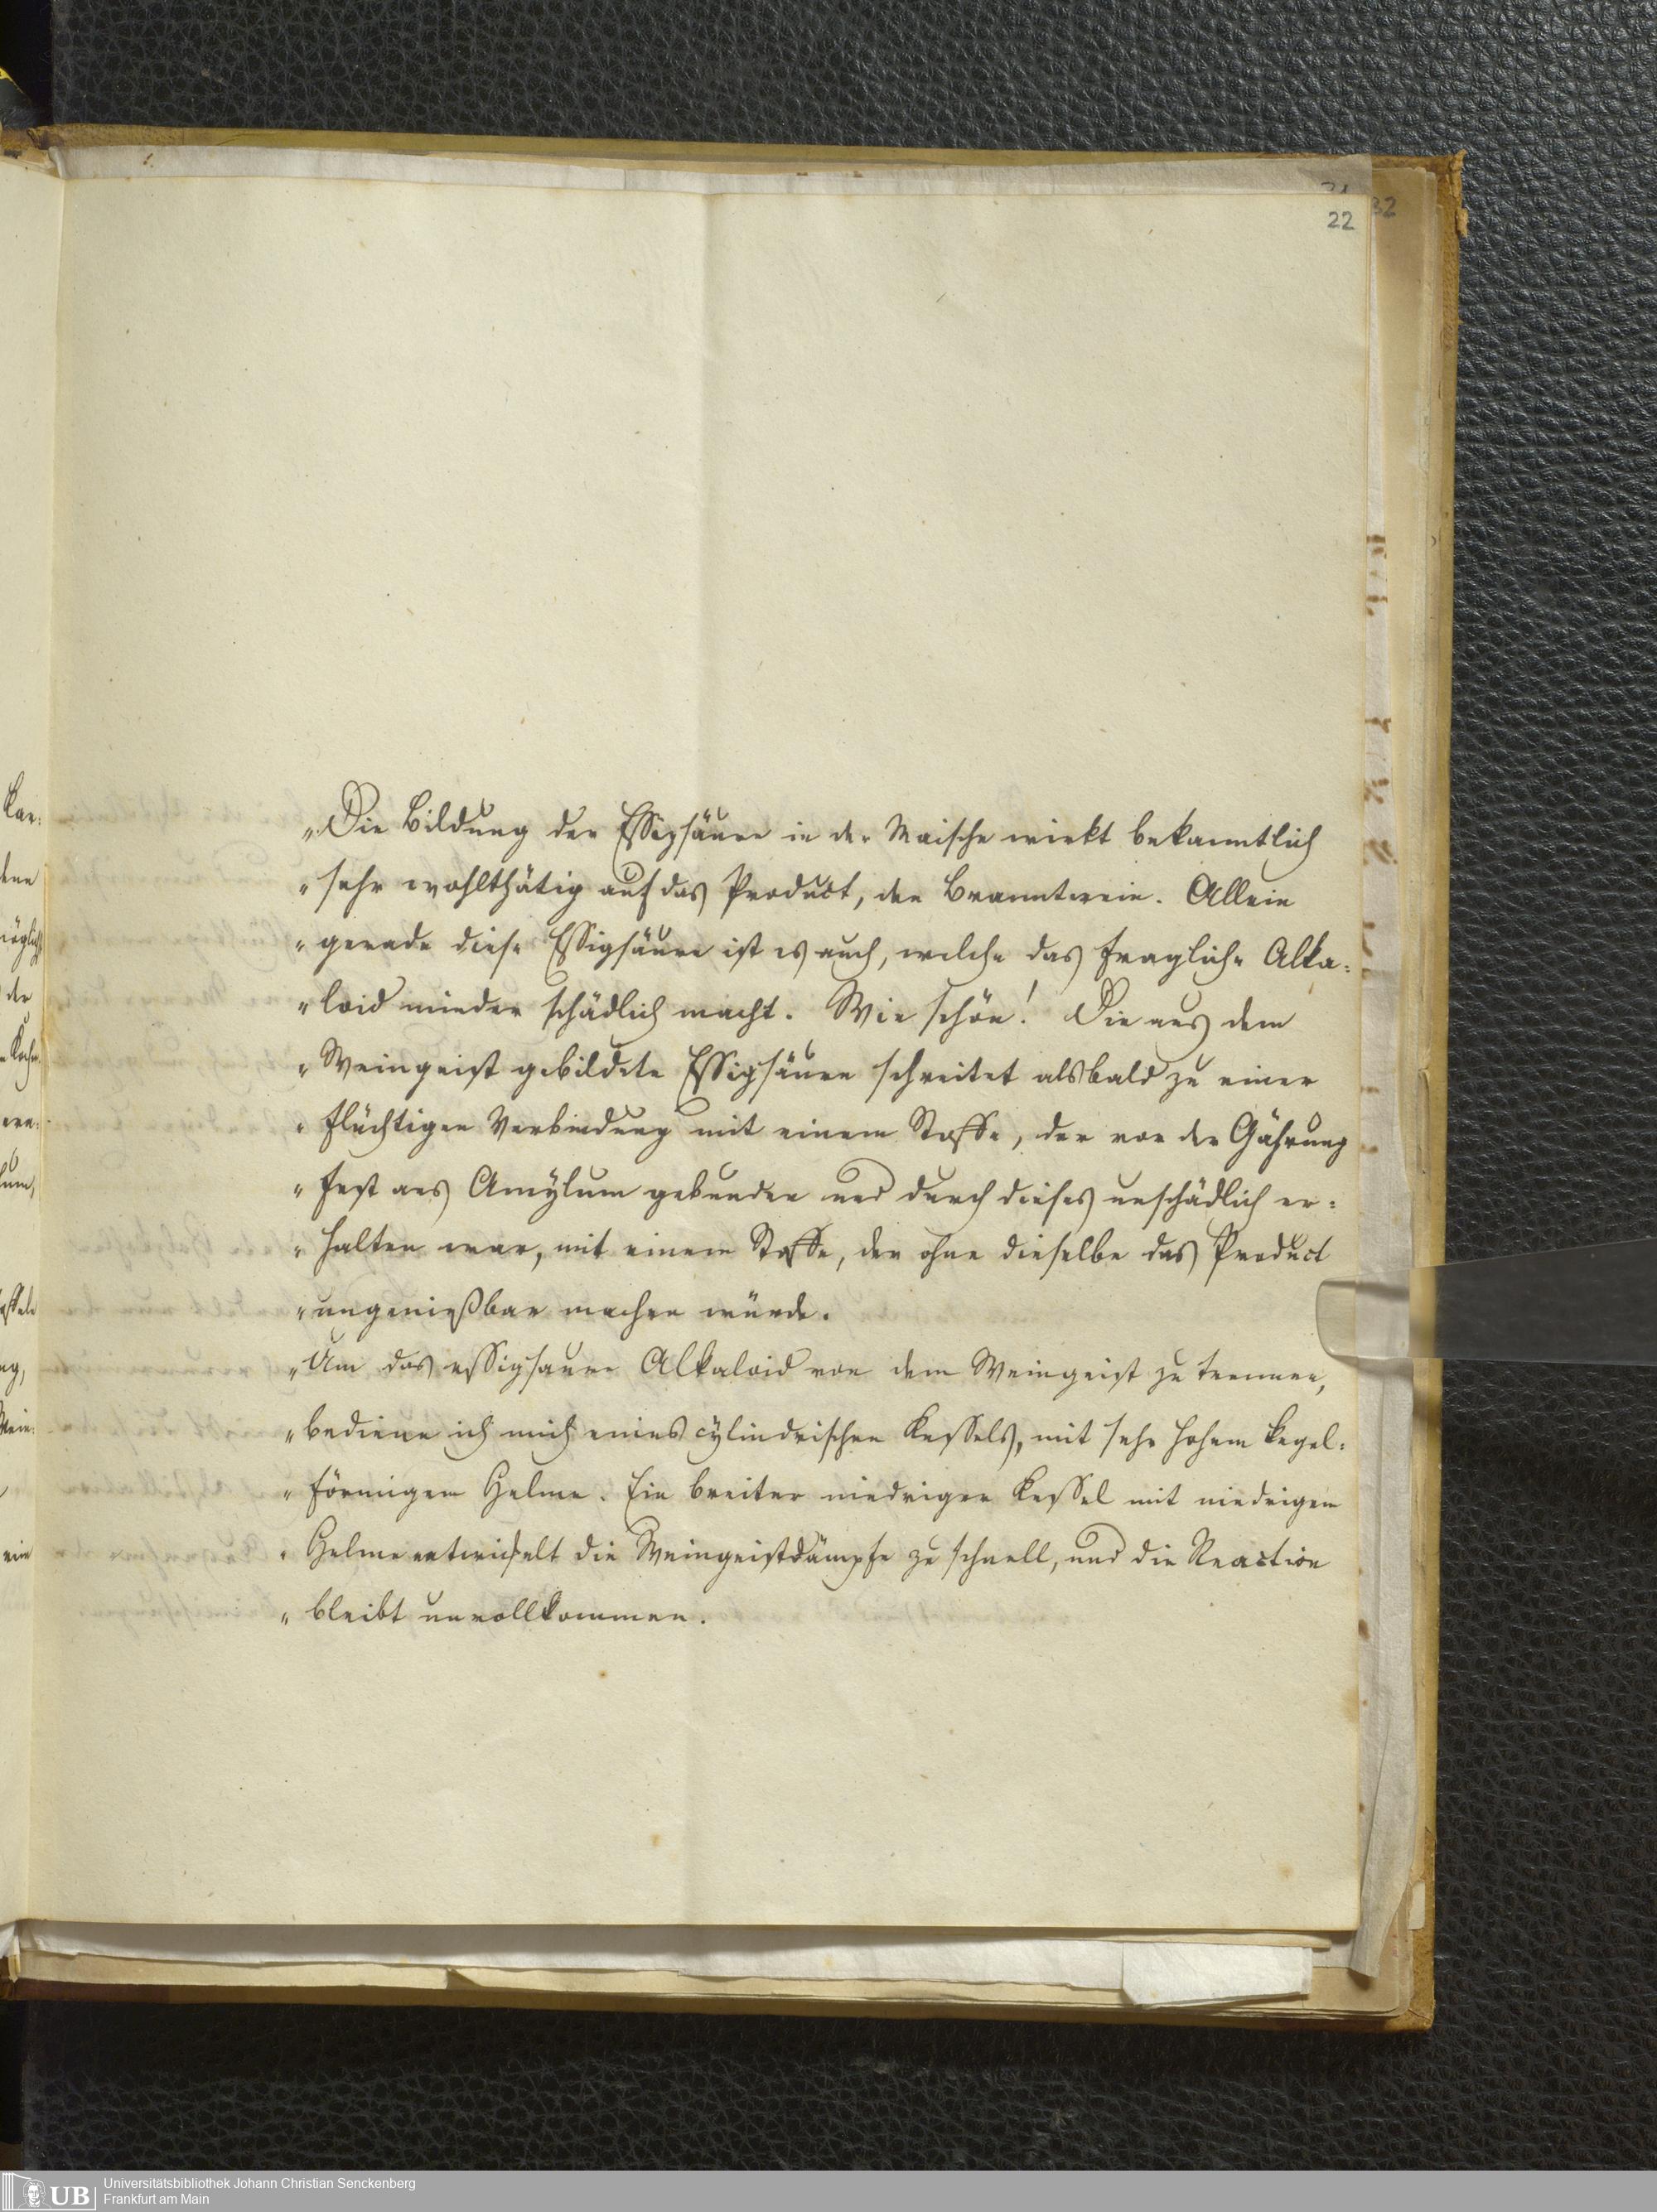 22
32
„Die Bildung der Essigsäure in der Maische wirkt bekanntlich
„sehr wohlthätig auf das Product, den Branntwein. Allein
„gerade diese Essigsäure ist es auch, welche das fragliche Alka=
„loid minder schädlich macht. Wie schön! Die aus dem
„Weingeist gebildete Essigsäure schreitet alsbald zu einer
„flüchtigen Verbindung mit einem Stoffe, der vor der Gährung
„fest ans Amylum gebunden und durch dieses unschädlich er=
„halten war, mit einem Stoffe, der ohne dieselbe das Product
„ungenießbar machen würde.
„Um das essigsaure Alkaloid von dem Weingeist zu trennen,
„bediene ich mich eines cylindrischen Kessels, mit sehr hohem kegel=
„förmigem Helme. Ein breiter niedriger Kessel mit niedrigem
„Helme entwickelt die Weingeistdämpfe zu schnell, und die Reaction
„bleibt unvollkommen.
UB
Universitätsbibliothek Johann Christian Senckenberg
Frankfurt am Main